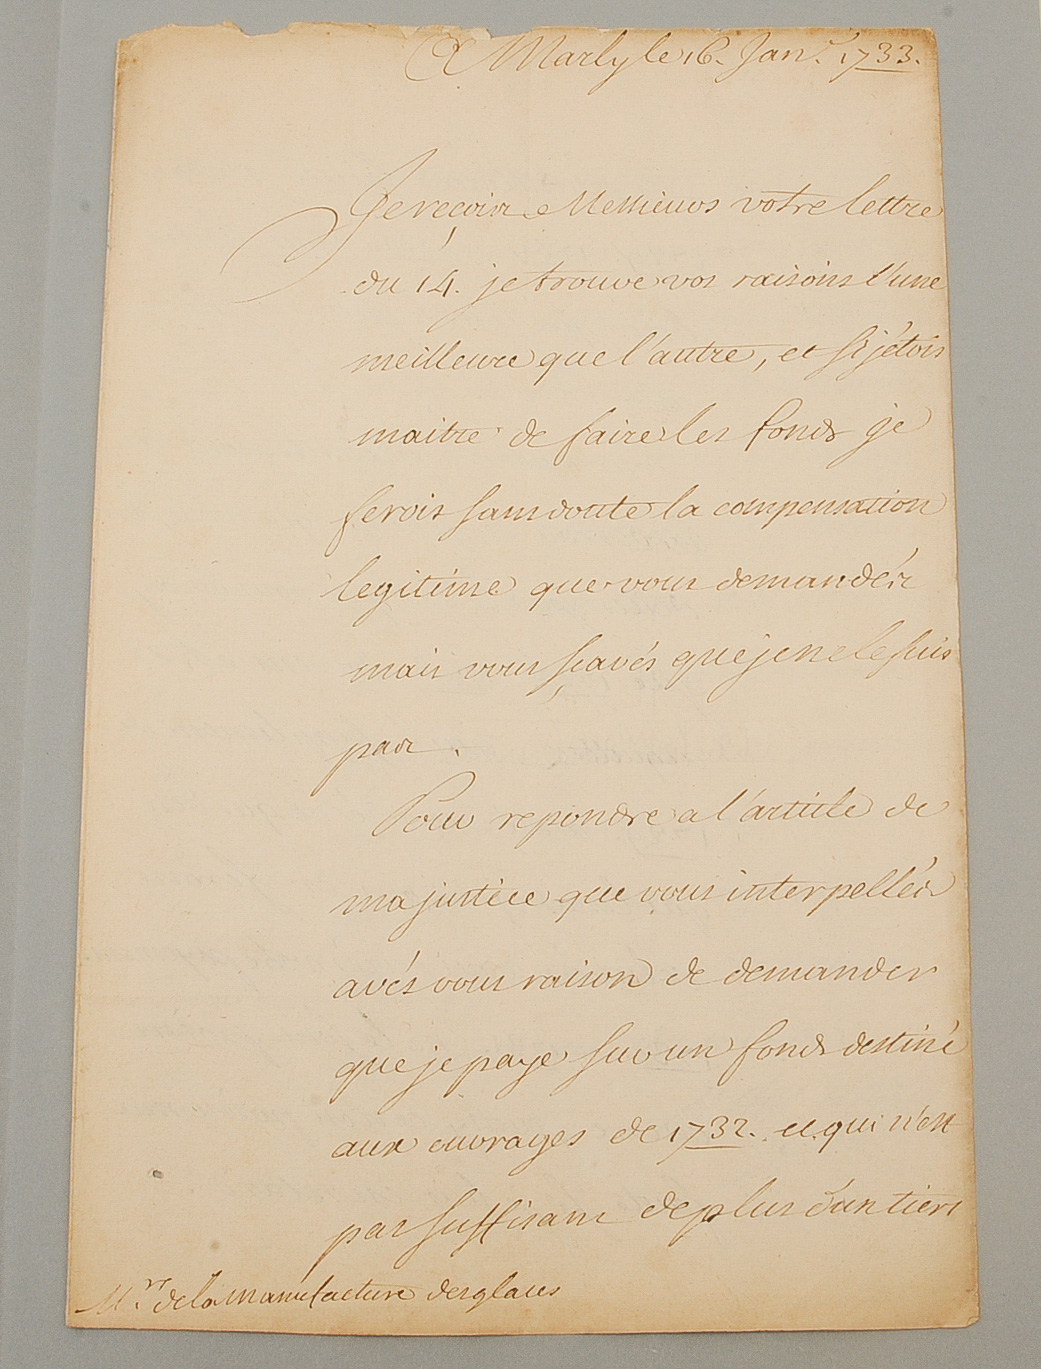 A Marly le 16. Janr. 1733.
Je reçois Messieurs votre lettre
du 14. je trouve vos raisons l'une
meilleure que l'autre, et si j'étois
maitre de faire les fonds je
ferois sans doute la compensation
legitime que vous demandés
mais vous sçavés que je ne le suis
pas.
Pour repondre a l'article de
ma justice que vous interpellés
avés vous raison de demander
que je paye sur un fonds destiné
aux ouvrages de 1732. et qui n'est
pas suffisant de plus d'un tiers
Mrs. de la Manufacture des glaces